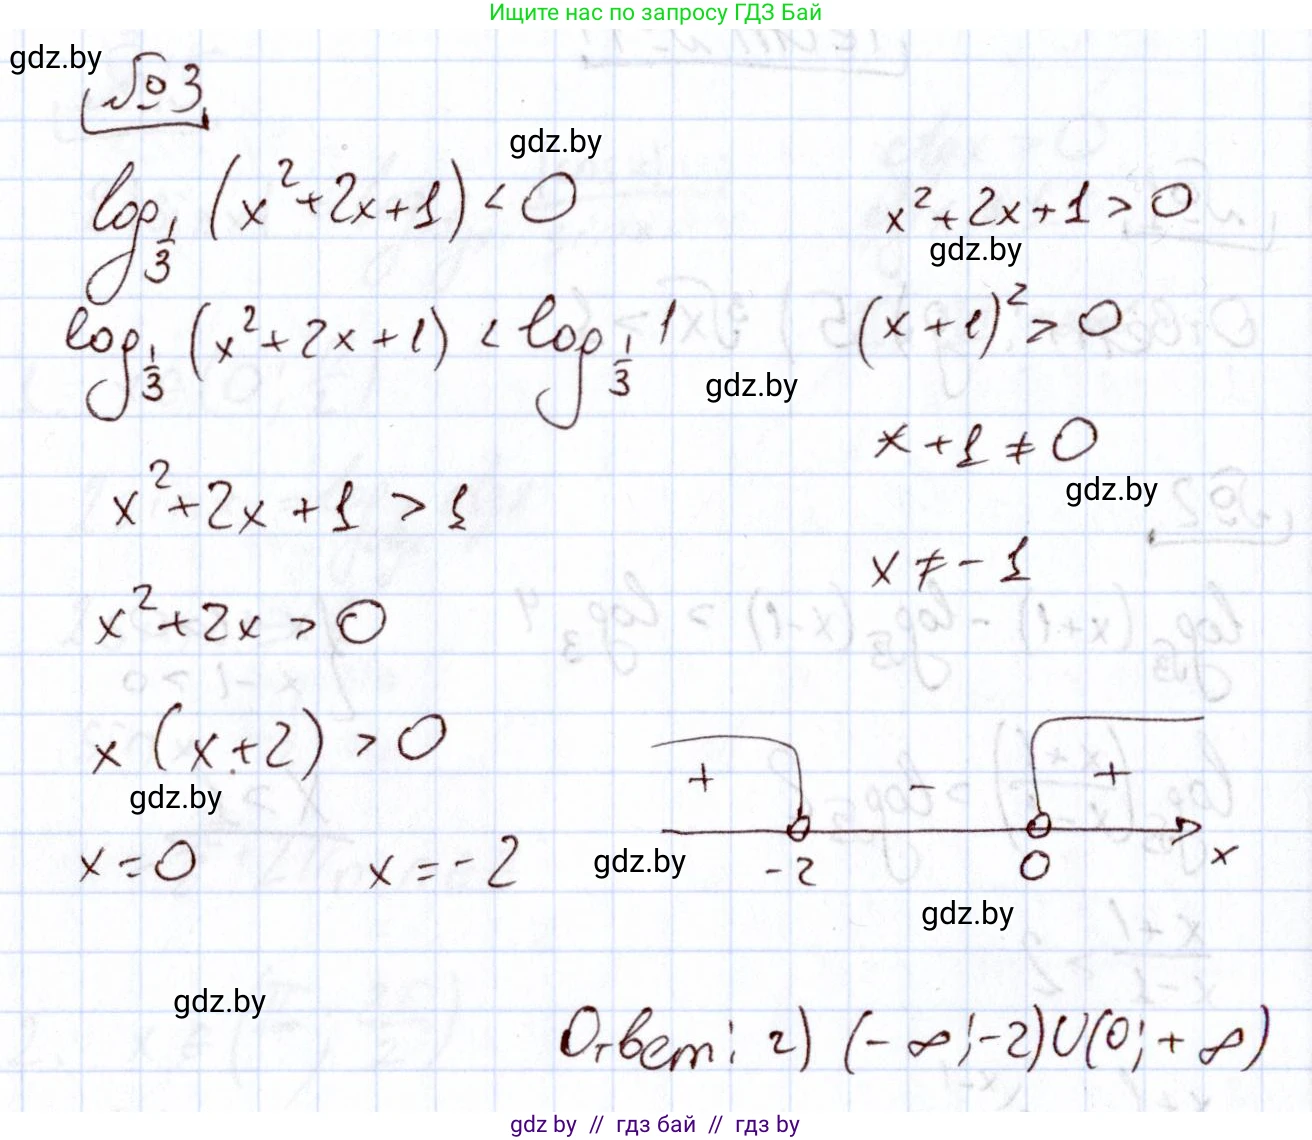 Ищите нас по запросу ГДЗ Бай
gdz.by
№3
gdz.by
log_{1/3} (x² + 2x + 1) < 0
x² + 2x + 1 > 0
gdz.by
log_{1/3} (x² + 2x + 1) < log_{1/3} 1
(x + 1)² > 0
gdz.by
x + 1 ≠ 0
gdz.by
x² + 2x + 1 > 1
x ≠ - 1
x² + 2x > 0
x (x + 2) > 0
gdz.by
+ - +
x = 0 x = - 2
gdz.by
-2 0 x
gdz.by
gdz.by
Ответ: г) (- ∞; -2) U (0; + ∞)
gdz.by // гдз бай // гдз by